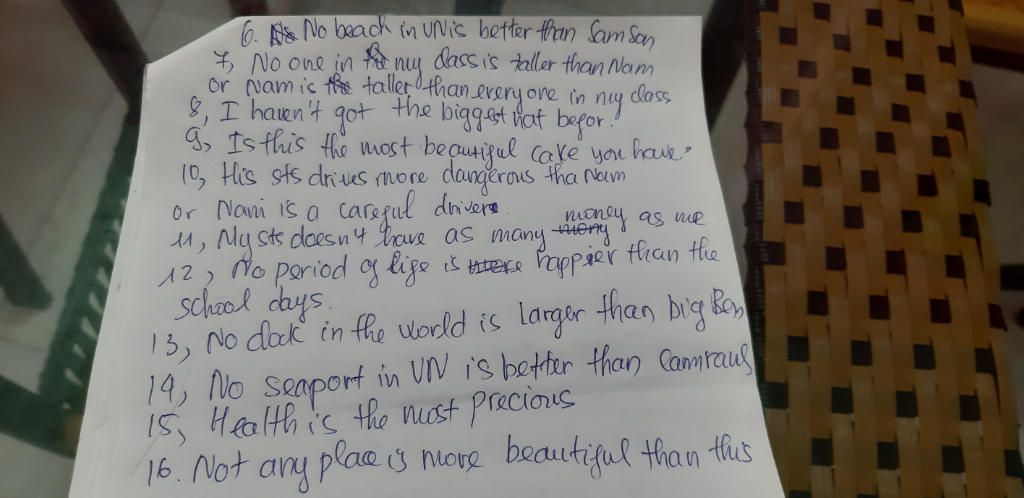 6. No beach in VN is better than Sam Son
7, No one in my class is taller than Nam
or Nam is taller than everyone in my class
8, I haven't got the biggest hat befor.
9, Is this the most beautiful cake you have?
10, His sts drives more dangerous tha Nam
or Nam is a careful driver.
11, My sts doesn't have as many money as me
12, No period of life is happier than the
school days.
13, No clock in the world is larger than big Ben
14, No seaport in VN is better than Camranh
15, Health is the most precious
16. Not any place is more beautiful than this